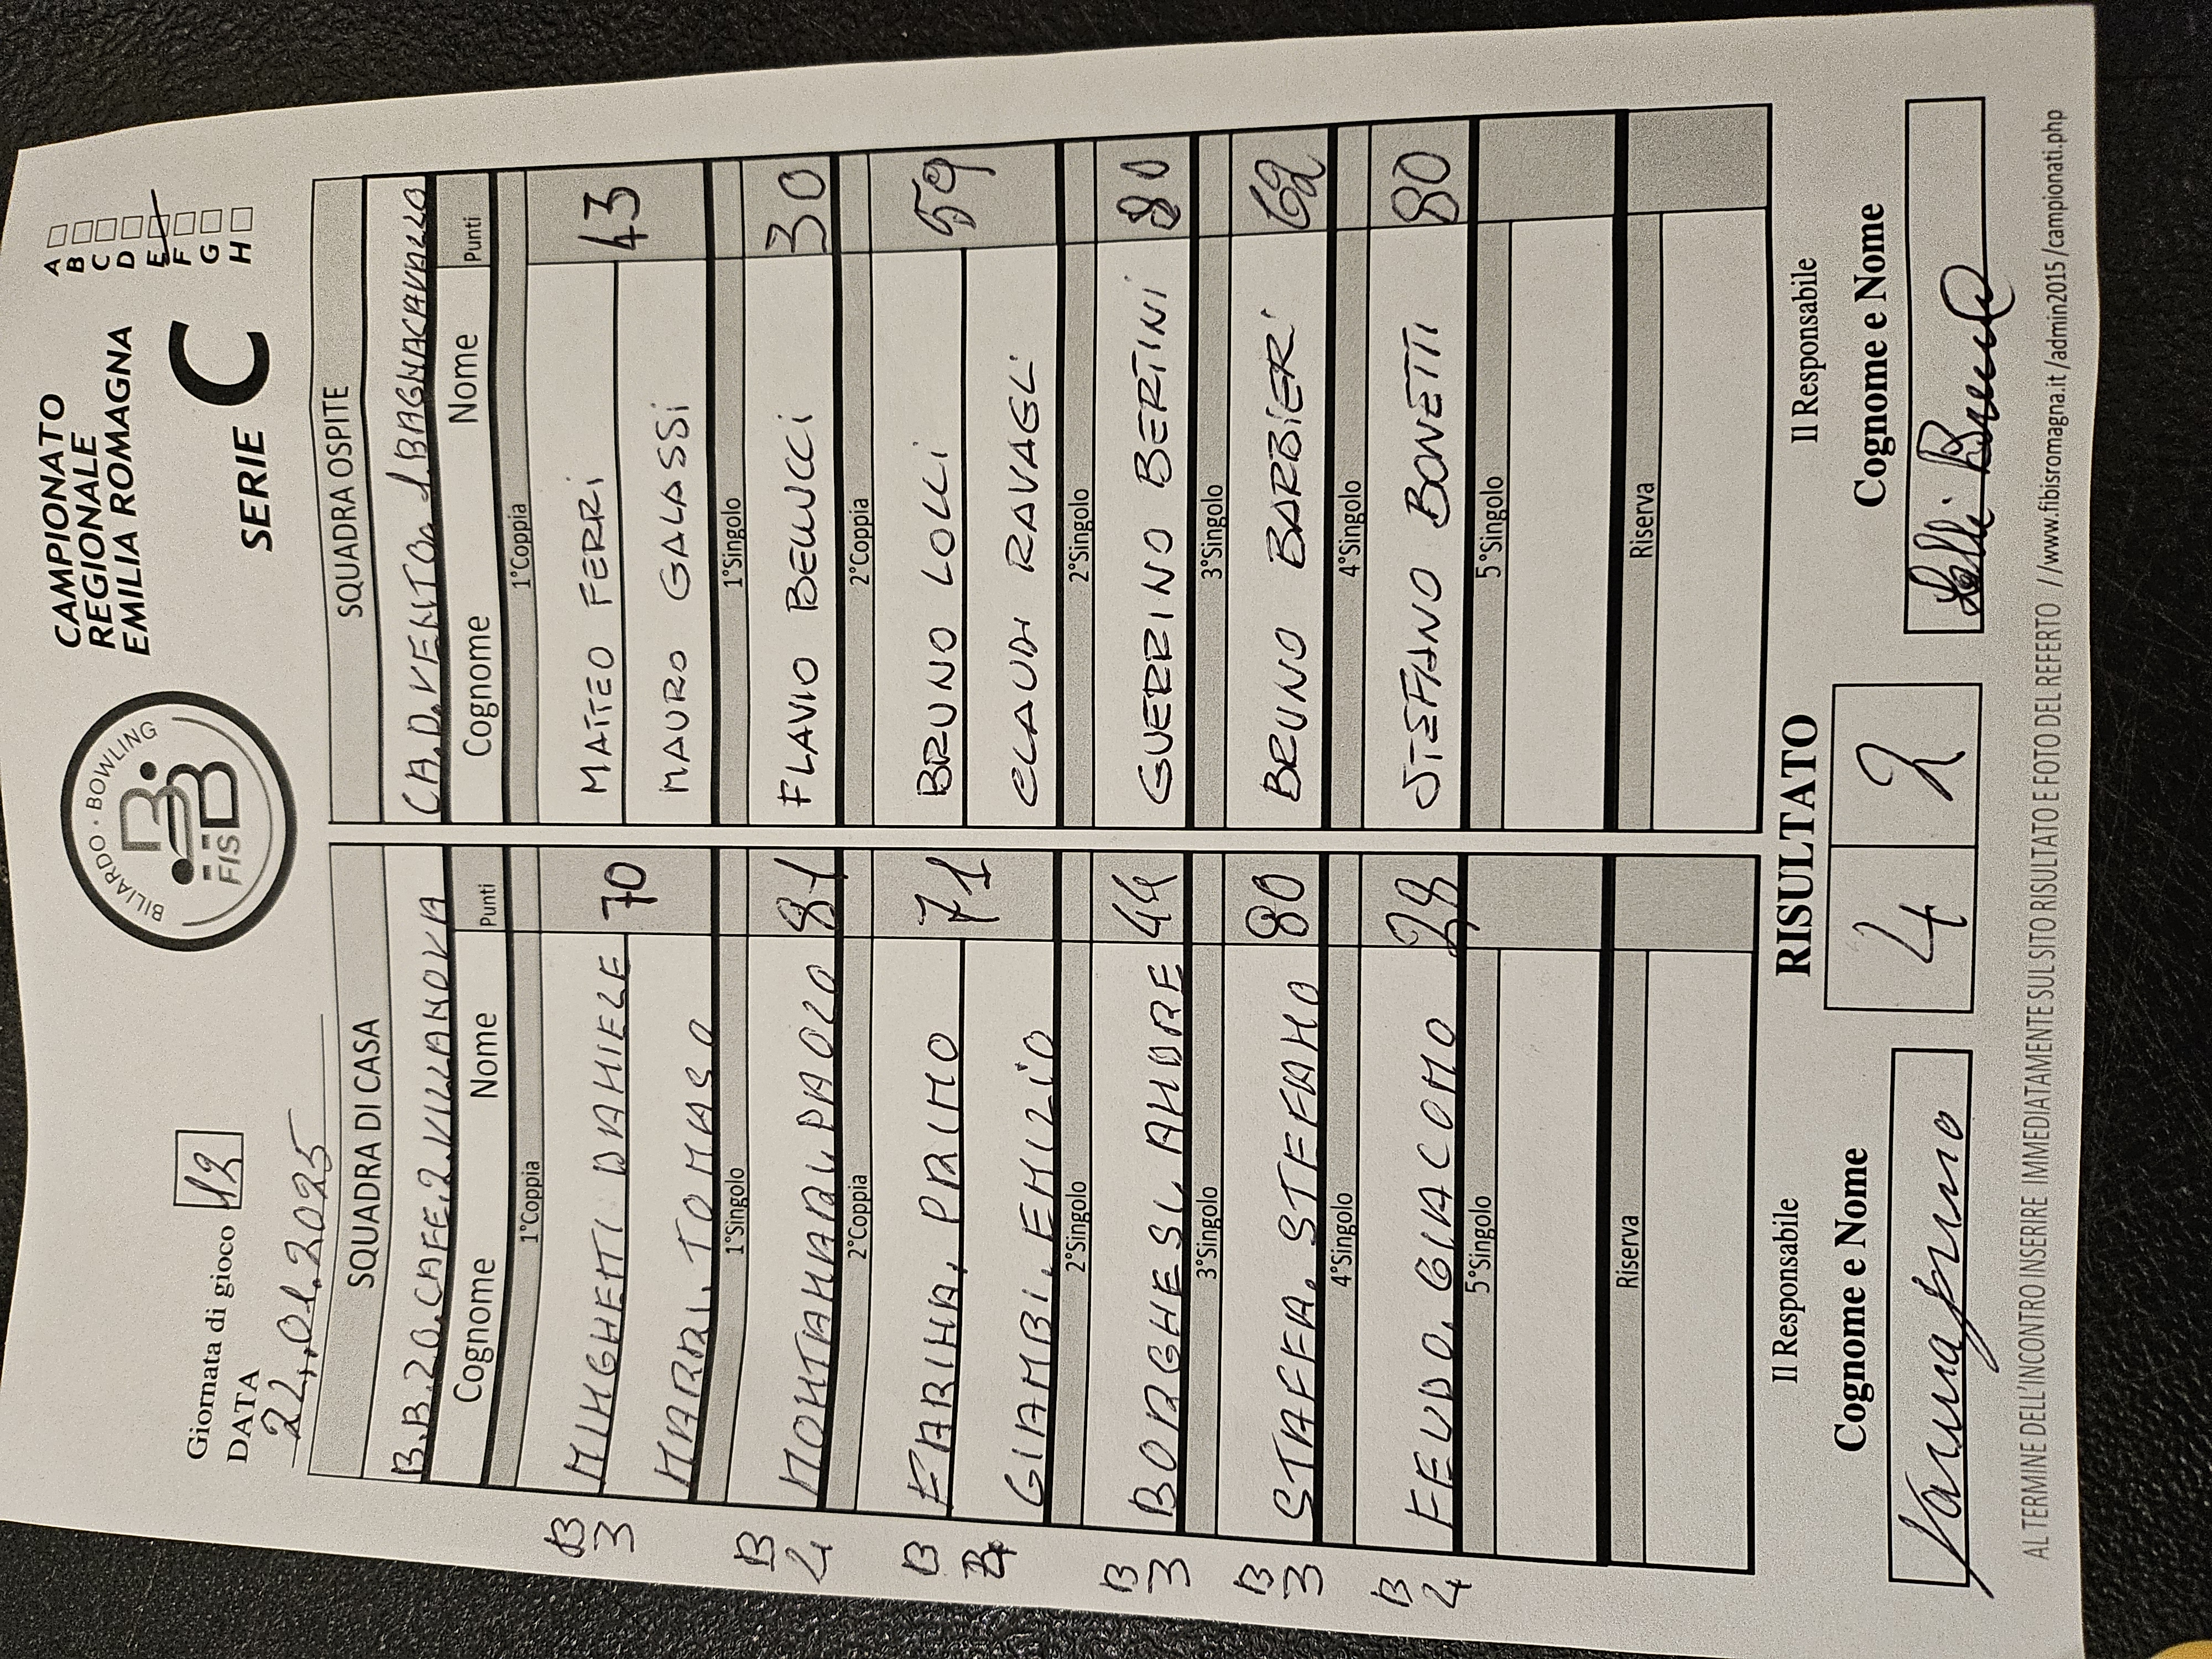 BILIARDO · BOWLING
FISBB
CAMPIONATO
REGIONALE
EMILIA ROMAGNA
SERIE C
A
B
C
D
E
F
G
H
Giornata di gioco 12
DATA
22.01.2025
SQUADRA DI CASA
B.B.20.CAFE.2.VILLANOVA
Cognome Nome Punti
1°Coppia
B 3 MINGHETTI DANIELE 70
TOMASO
1°Singolo
B 4 PAOLO 81
2°Coppia
B FARINA. PRIMO 71
GIAMBI. EMIZIO
2°Singolo
B 3 BORGHESI. ANDRE 44
3°Singolo
B 3 STAFFA. STEFANO 80
4°Singolo
B 4 FEUDO. GIACOMO
5°Singolo
Riserva
SQUADRA OSPITE
CA.D.VENTO
Cognome Nome Punti
1°Coppia
MATTEO FERRI 43
MAURO GALASSI
1°Singolo
FLAVIO BELLUCCI 30
2°Coppia
BRUNO LOLLI 59
RAVAGLI
2°Singolo
GUERRINO BERTINI 80
3°Singolo
BRUNO BARBIERI 62
4°Singolo
STEFANO BONETTI 80
5°Singolo
Riserva
Il Responsabile
Cognome e Nome
RISULTATO
4 2
Il Responsabile
Cognome e Nome
AL TERMINE DELL'INCONTRO INSERIRE IMMEDIATAMENTE SUL SITO RISULTATO E FOTO DEL REFERTO //www.fibisromagna.it/admin2015/campionati.php